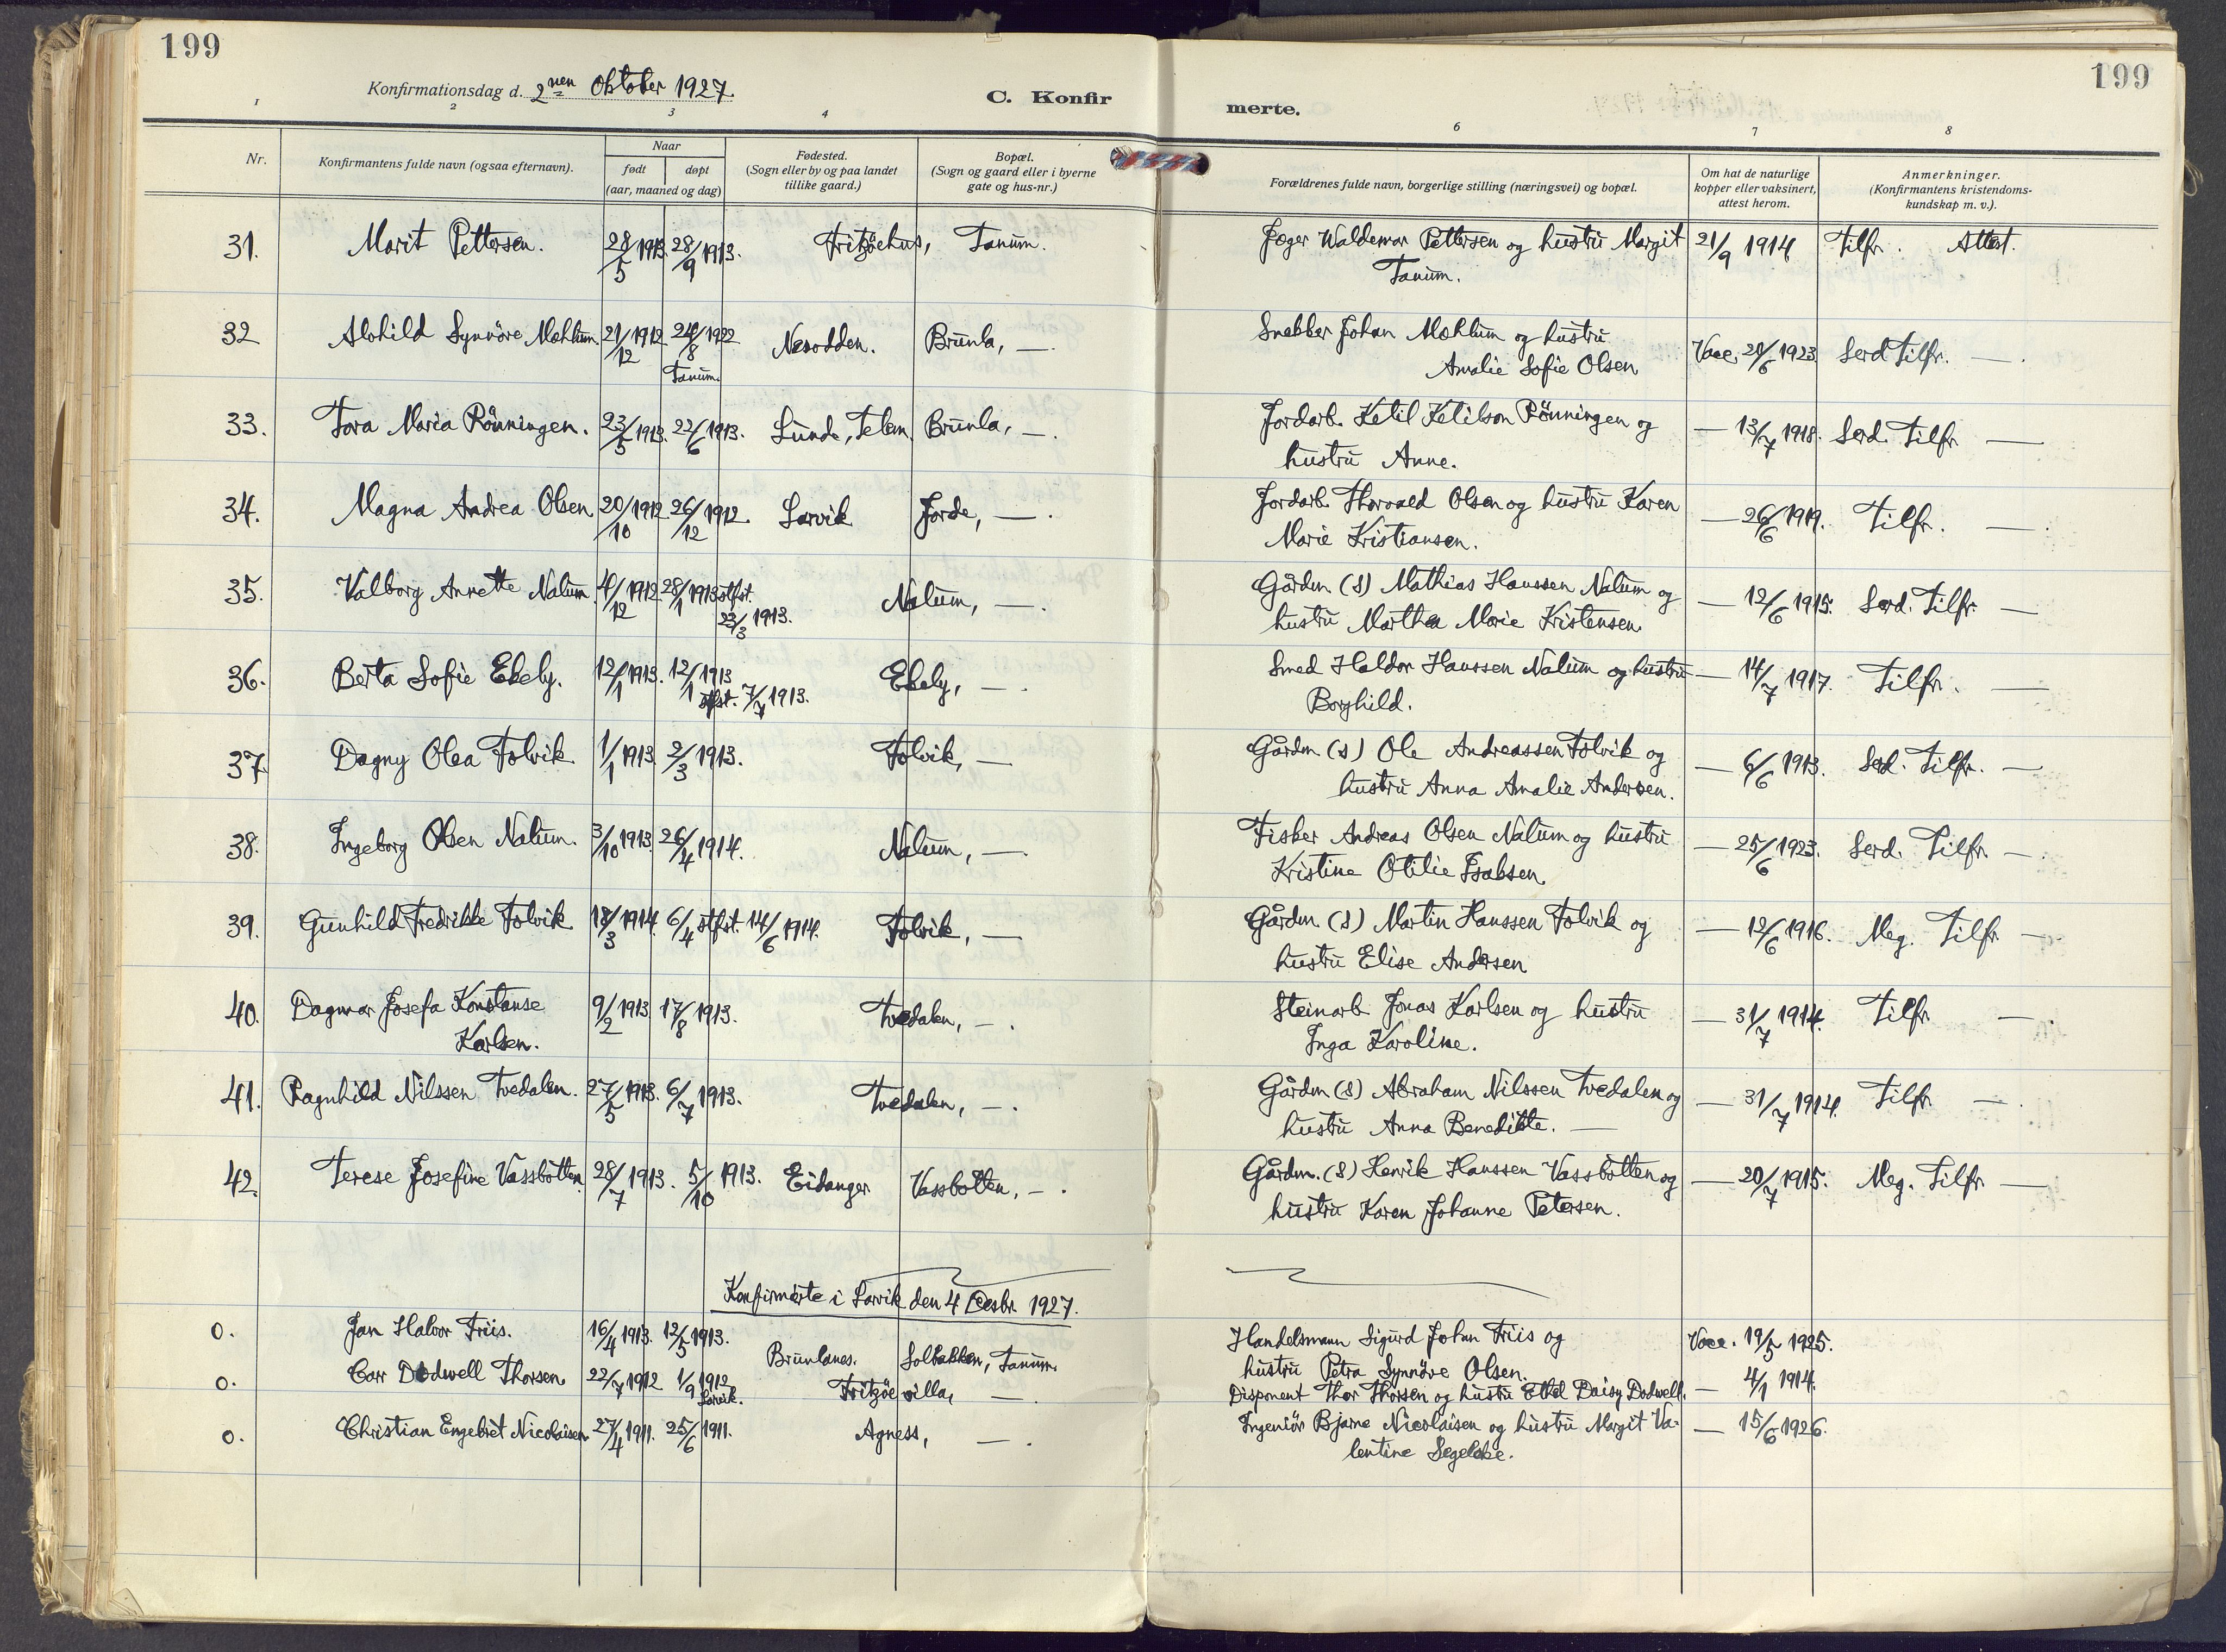 199
199
Konfirmationsdag d. 2nen Oktober 1927.
C. Konfir
merte.
1 2 3 4 6 7 8
Nr.
Konfirmantens fulde navn (ogsaa efternavn).
Naar
født døpt
(aar, maaned og dag)
Fødested.
(Sogn eller by og paa landet
tillike gaard.)
Bopæl.
(Sogn og gaard eller i byerne
gate og hus-nr.)
Forældrenes fulde navn, borgerlige stilling (næringsvei) og bopæl.
Om hat de naturlige
kopper eller vaksinert,
attest herom.
Anmerkninger.
(Konfirmantens kristendoms-
kundskap m. v.).
31. Marit Pettersen. 28/5 1913. 28/9 1913. Fritzöehus, Tanum. Jæger Waldemar Pettersen og hustru Margit 21/9 1914 Tilfr. Attest.
Tanum.
32 Alvhild Synnöve Mæhlum 21/12 1912 24/8 1922 Nesodden. Brunla, —. Snekker Johan Mæhlum og hustru Vacc. 20/6 1923 Serd Tilfr. —.
Tanum. Amalie Sofie Olsen
33. Tora Maria Rönningen. 23/5 1913. 22/6 1913. Lunde, Telem. Brunla, —. Jordarb. Ketil Ketilson Rönningen og — 13/7 1918. Serd. Tilfr —
hustru Anne.
34. Magna Andrea Olsen 20/10 1912 26/12 1912. Larvik Jorde, —. Jordarb. Thorvald Olsen og hustru Karen — 26/6 1919. Tilfr. —
Marie Kristiansen.
35. Valborg Annette Nalum. 4/12 1912 28/1 1913 stfst. Nalum, —. Gårdm (S) Mathias Hanssen Nalum og — 12/6 1915. Serd. Tilfr. —
23/3 1913. hustru Marthea Marie Kristensen
36. Berta Sofie Ekely. 12/1 1913. 12/1 1913 Ekely, —. Smed Haldor Hanssen Nalum og hustru — 14/7 1917. Tilfr. —
stfst. 7/7 1913. Borghild.
37. Dagny Olea Folvik 1/1 1913. 2/3 1913. Folvik, — Gårdm (s) Ole Andreassen Folvik og — 6/6 1913. Serd. Tilfr. —
hustru Anna Amalie Andersen.
38. Ingeborg Olsen Nalum. 3/10 1913. 26/4 1914. Nalum, —. Fisker Andreas Olsen Nalum og hustru — 25/6 1923. Serd. Tilfr. —
Kristine Otilie Isaksen
39. Gunhild Fredrikke Folvik 18/3 1914. 6/4 stfst. 14/6 1914. Folvik, — Gårdm. (S) Martin Hanssen Folvik og — 12/6 1916. Meg. Tilfr —
hustru Elise Andersen
40. Dagmar Josefa Konstanse 9/2 1913 17/8 1913. Tvedalen, —. Steinarb Jonas Karlsen og hustru — 31/7 1914. Tilfr —
Karlsen. Inga Karoline.
41. Ragnhild Nilssen Tvedalen. 27/5 1913. 6/7 1913. Tvedalen, —. Gårdm (S) Abraham Nilssen Tvedalen og — 31/7 1914. Tilfr —.
hustru Anna Benedikte. —
42. Terese Josefine Vassbotten. 28/7 1913. 5/10 1913. Eidanger Vassbotten, —. Gårdm. (S) Henrik Hanssen Vassbotten og — 20/7 1915. Meg. Tilfr —
hustru Karen Johanne Petersen.
Konfirmerte i Larvik den 4 Desbr. 1927.
0. Jan Halvor Friis. 16/4 1913. 12/5 1913. Brunlanes. Solbakken, Tanum. Handelsmann Sigurd John Friis og Vacc. 19/5 1925.
hustru Petra Synnöve Olsen.
0. Carr Dodwell Thorsen 22/7 1912 1/9 1912 Fritzöe villa, — Disponent Thor Thorsen og hustru Ethel Daisy Dodwell. — 4/1 1914.
Larvik.
0. Christian Engebret Nicolaisen. 27/4 1911. 25/6 1911. Agness, —. Ingeniör Bjarne Nicolaisen og hustru Margit Va- — 15/6 1926.
lentine Segelcke.